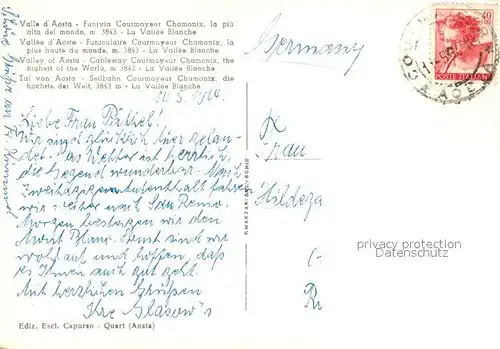 Valle d'Aosta - Funivia Courmayeur Chamonix, la più
alta del mondo, m. 3843 - La Vallée Blanche
Vallée d'Aoste - Funiculaire Courmayeur Chamonix, la
plus haute du monde, m. 3843 - La Vallée Blanche
Valley of Aosta - Cableway Courmayeur Chamonix, the
highest of the World, m. 3843 - La Vallée Blanche
Tal von Aosta - Seilbahn Courmayeur Chamonix, die
höchste der Welt, 3843 m - La Vallée Blanche
Liebe Frau
Wir sind glücklich hier gelan-
det. Das Wetter ist herrlich,
die Gegend wunderbar. Nach
Zweitägigem Aufenthalt fahren
wir weiter nach San Remo.
Morgen besteigen wir den
Mont Blanc. Sonst sind wir
wohlauf und hoffen, daß
es Ihnen auch gut geht.
Mit herzlichen Grüßen
Ihre Glasow's
Ediz. Escl. Capurso - Quart (Aosta)
Germany
40
POSTE ITALIANE
Frau
Hildega
privacy protection
Datenschutz